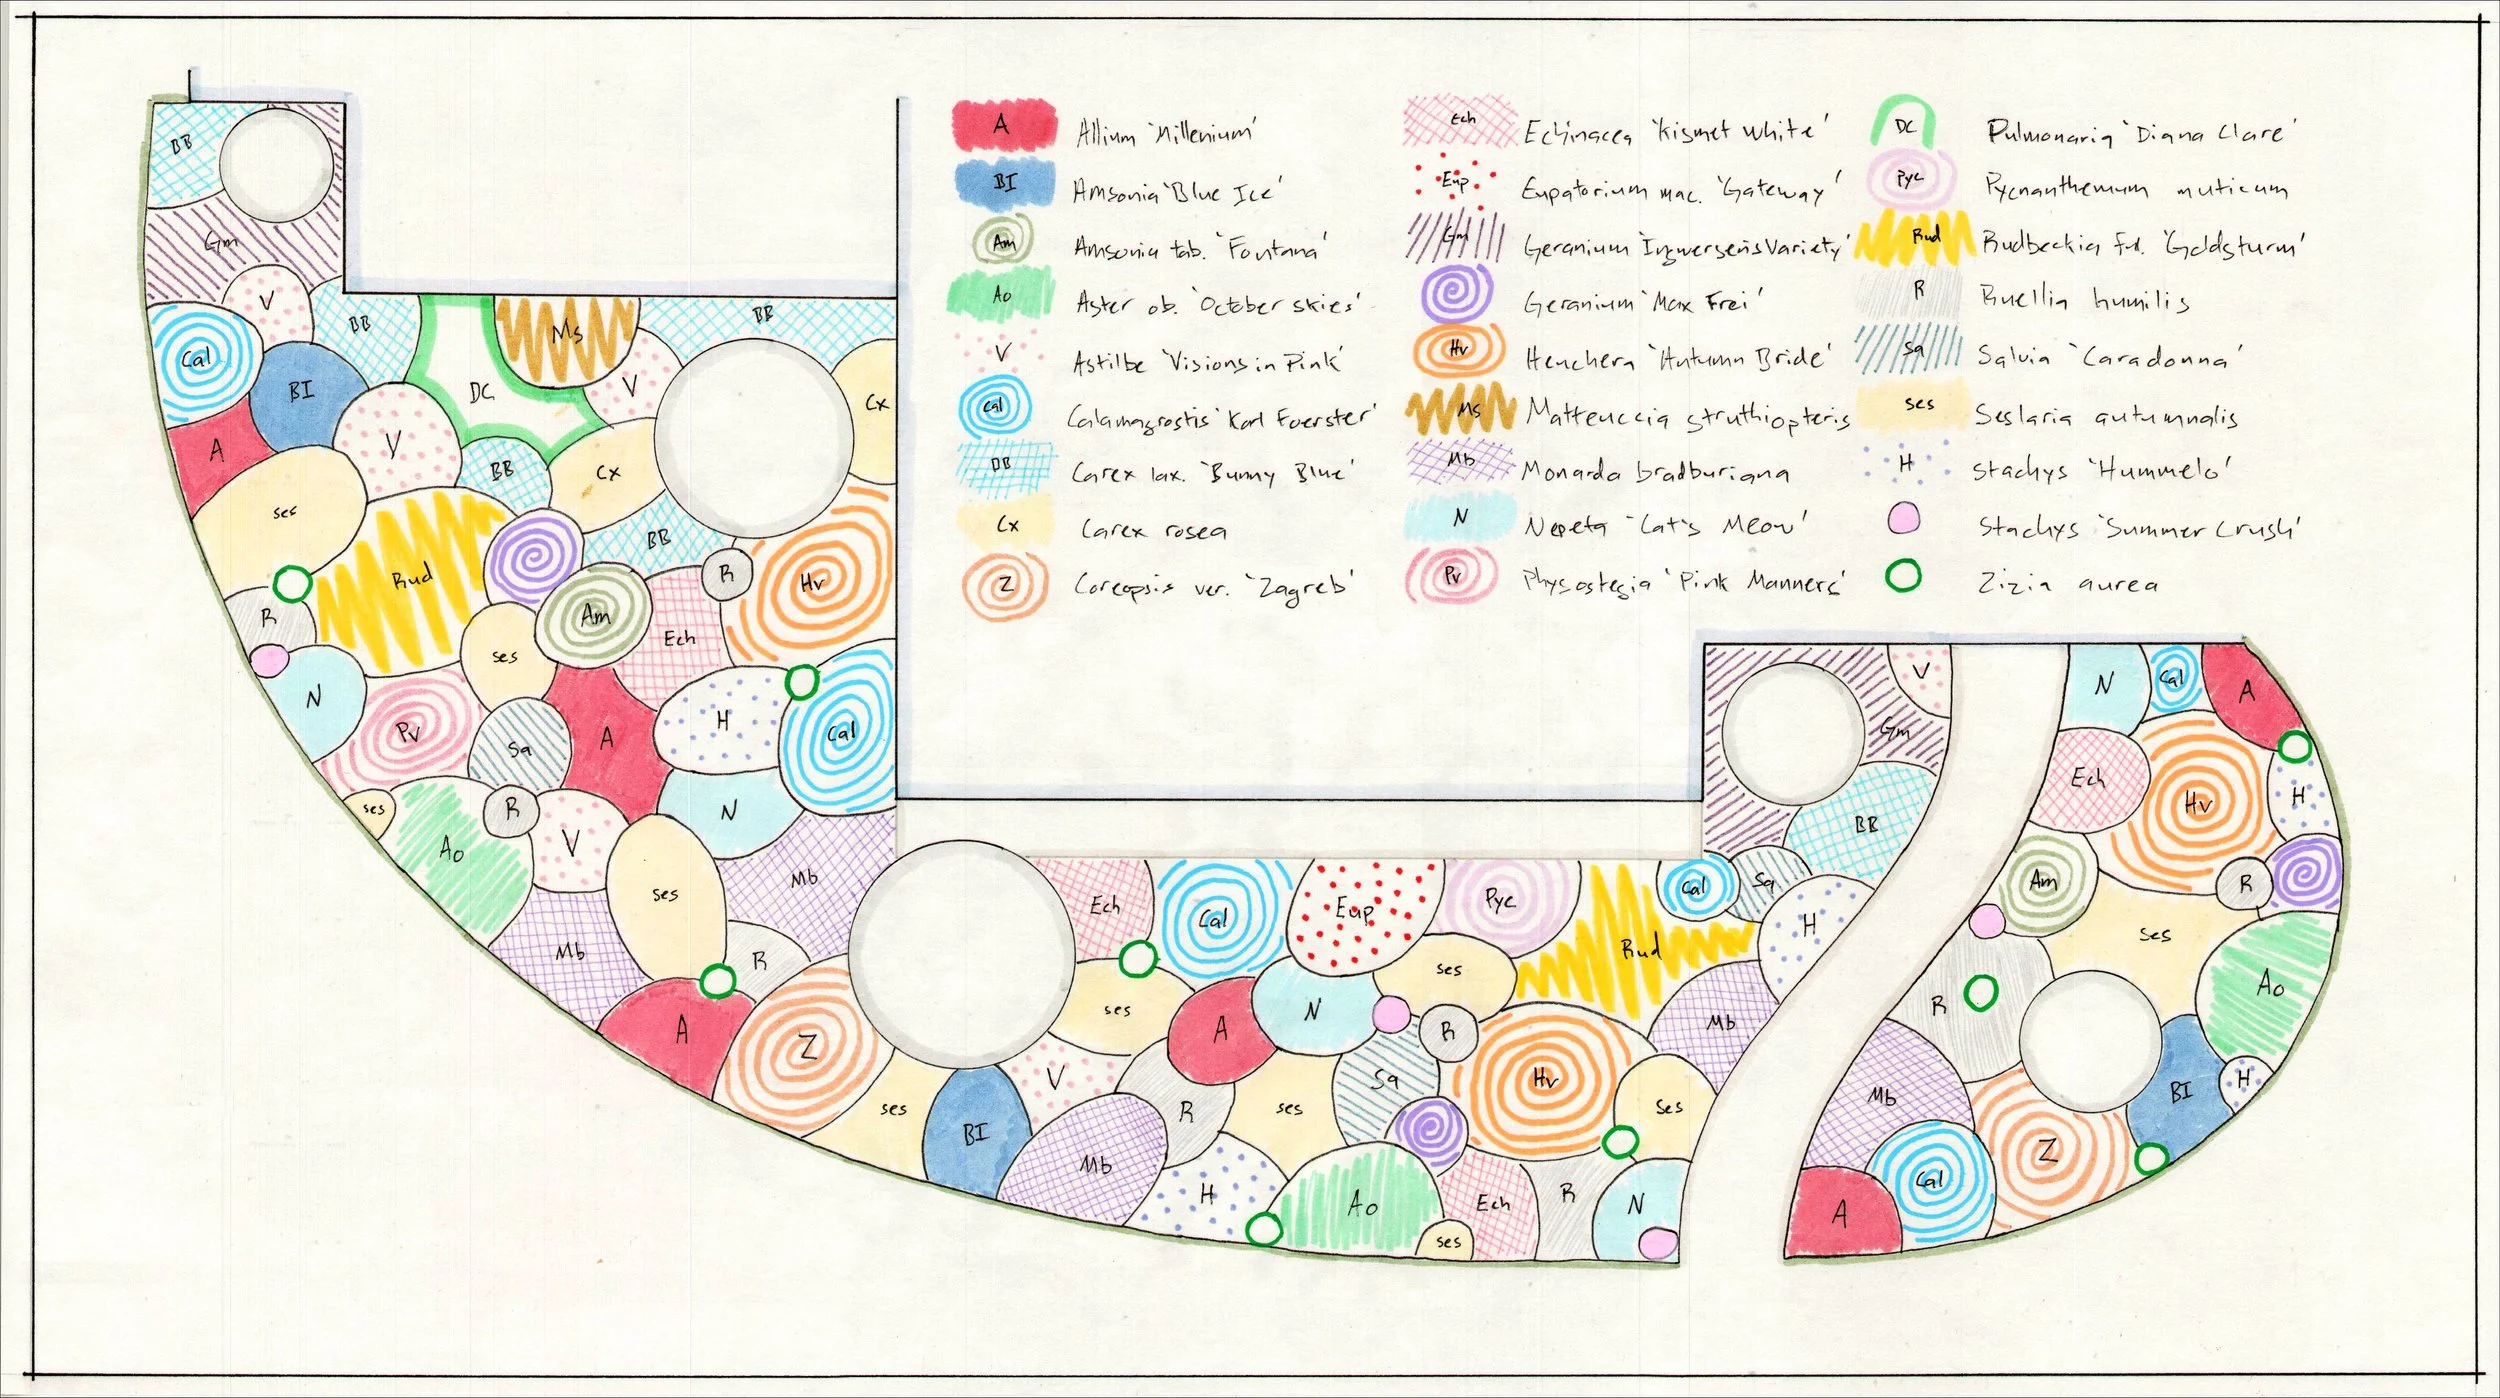 A Allium 'Millenium'
BI Amsonia 'Blue Ice'
Am Amsonia tab. 'Fontana'
Ao Aster ob. 'October skies'
V Astilbe 'Visions in Pink'
Cal Calamagrostis 'Karl Foerster'
BB Carex lax. 'Bunny Blue'
Cx Carex rosea
Z Coreopsis ver. 'Zagreb'
Ech Echinacea 'Kismet White'
Eup Eupatorium mac. 'Gateway'
Gm Geranium 'Ingwersen's Variety'
Geranium 'Max Frei'
Hv Heuchera 'Autumn Bride'
Ms Matteuccia struthiopteris
Mb Monarda bradburiana
N Nepeta 'Cat's Meow'
Pv Physostegia 'Pink Manners'
DC Pulmonaria 'Diana Clare'
Pyc Pycnanthemum muticum
Rud Rudbeckia ful. 'Goldsturm'
R Ruellia humilis
Sa Salvia 'Caradonna'
ses Seslaria autumnalis
H Stachys 'Hummelo'
Stachys 'Summer Crush'
Zizia aurea
BB
Gm
V
BB
Ms
BB
Cal
BI
DC
V
Cx
A
V
BB
Cx
ses
BB
Rud
R
Hv
R
Am
Ech
ses
N
Pv
Sa
A
H
Cal
ses
R
N
Ao
V
Mb
ses
Mb
R
A
Z
ses
BI
Ech
Cal
Eup
Pyc
Rud
Cal
Sa
H
ses
ses
A
N
R
Mb
V
R
ses
Sa
Hv
ses
Mb
H
Ao
ses
Ech
R
N
V
Gm
BB
N
Cal
A
Ech
Hv
H
Am
R
ses
Ao
R
Mb
BI
H
Z
Cal
A